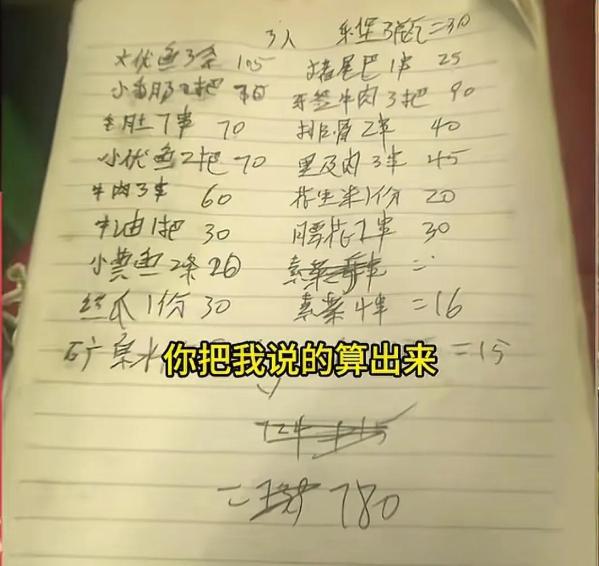 3人 乐堡3瓶=30
大优鱼3条 105 猪尾巴1串 25
小郡肝2把 牙签牛肉3把 90
毛肚7串 70 排骨2串 40
小优鱼2把 70 里及肉3串 45
牛肉3串 60 花生米1份 20
牛油1把 30 腰花2串 30
小黄鱼2条 20
丝瓜1份 30 素菜4串 =16
矿泉水 =15
你把我说的算出来
= 780